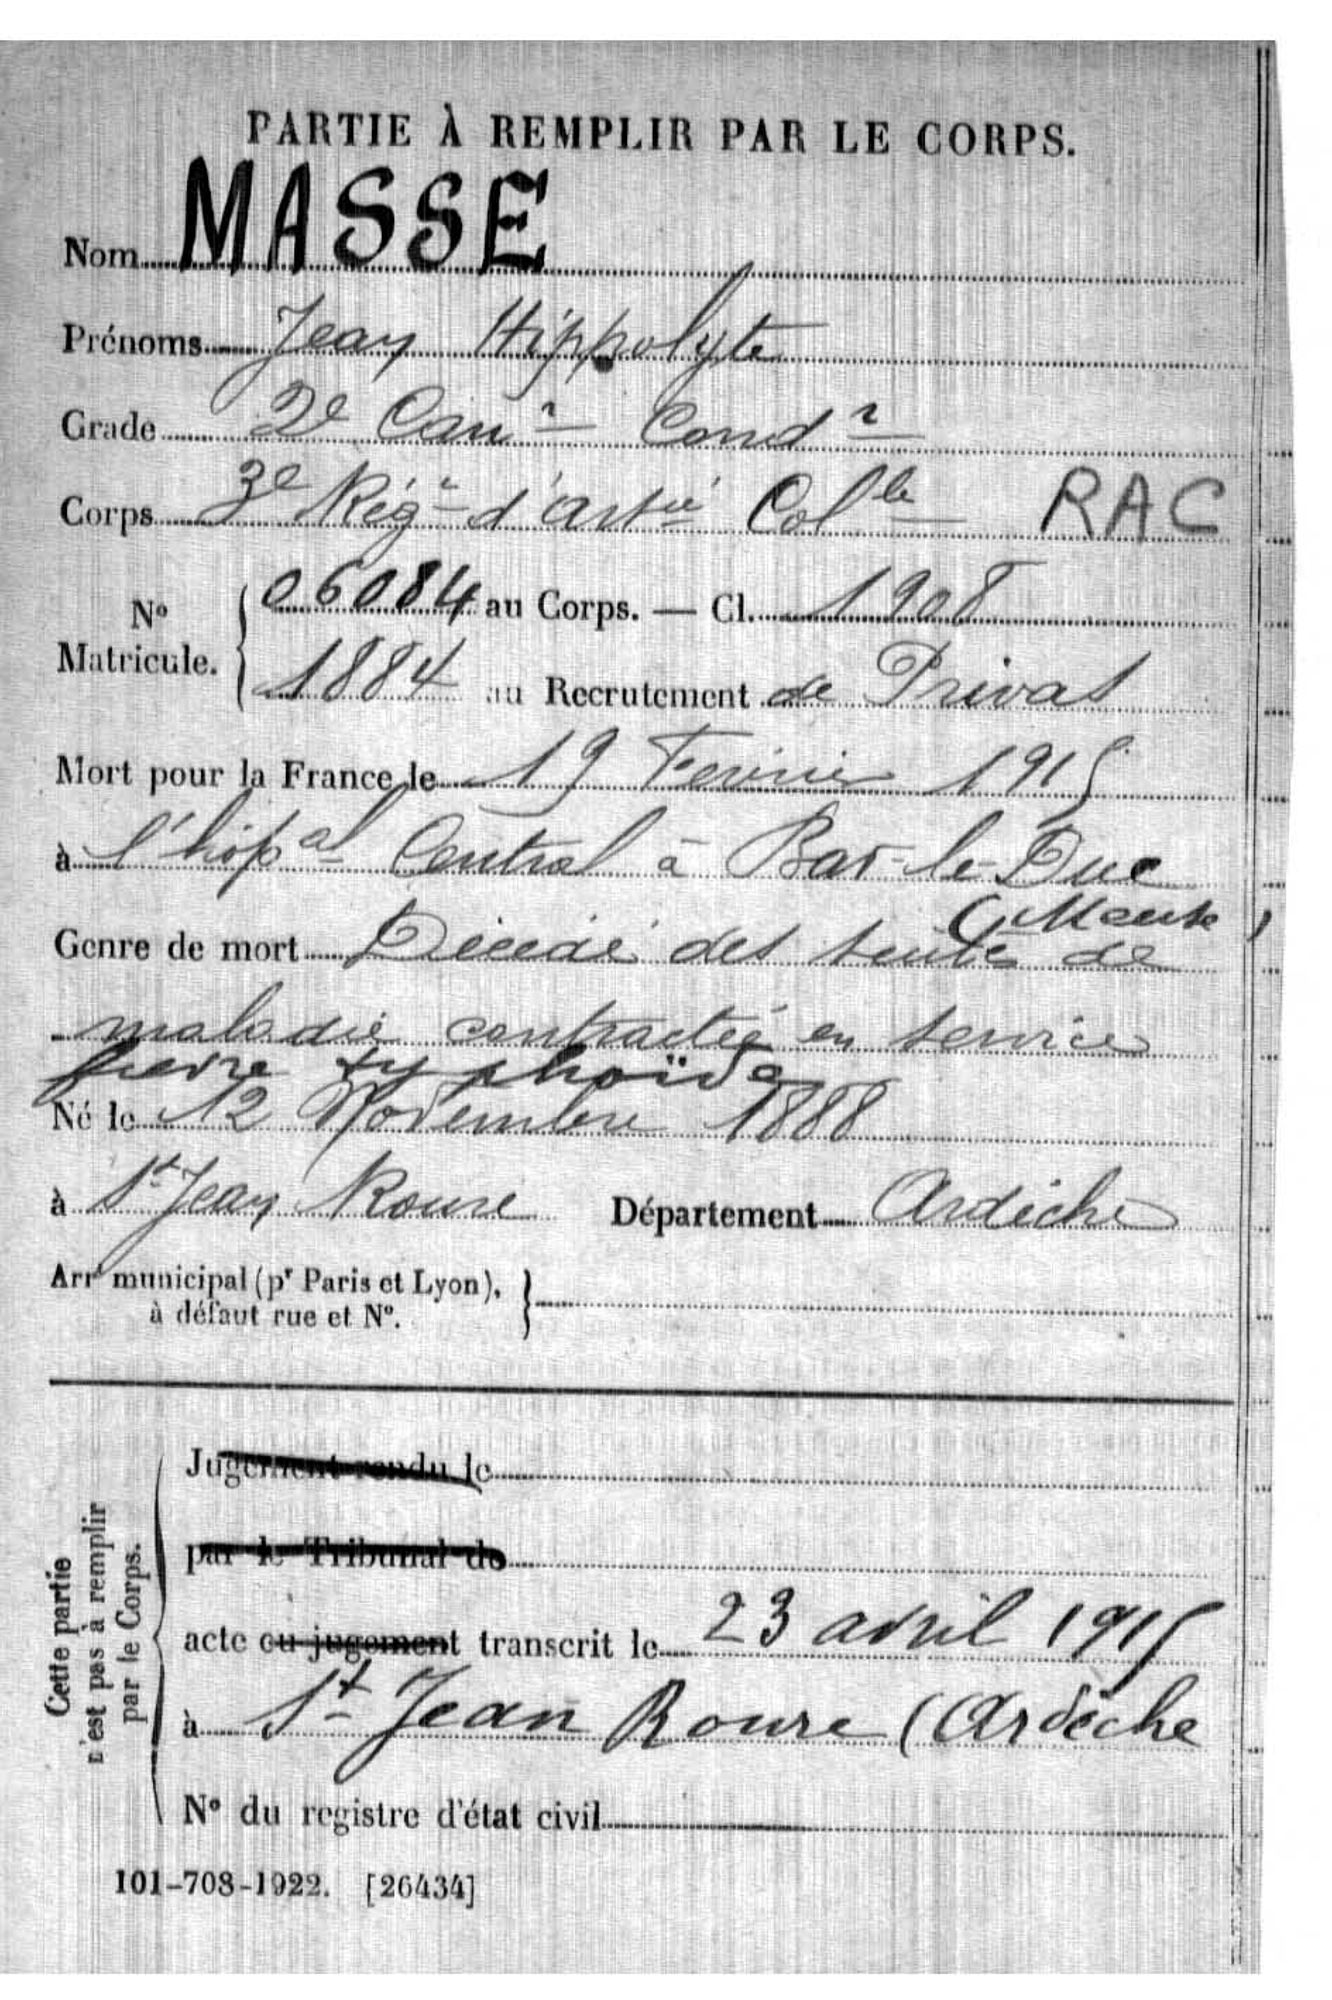 PARTIE À REMPLIR PAR LE CORPS.
Nom MASSE
Prénoms Jean Hippolyte
Grade 2e Canr Condr
Corps 3e Régt d'Artie Colle RAC
No Matricule. { 06084 au Corps. — Cl. 1908
1884 au Recrutement de Privas
Mort pour la France le 19 Fevrier 1915
à l'hôpal Central à Bar-le-Duc
(Meuse)
Genre de mort Décédé des suites de
maladie contractée en service
fievre typhoïde
Né le 12 Novembre 1888
à St Jean Roure Département Ardèche
Arrt municipal (pr Paris et Lyon), à défaut rue et No. }
Cette partie n'est pas à remplir par le Corps.
Jugement rendu le
par le Tribunal de
acte ou jugement transcrit le 23 avril 1915
à St Jean Roure (Ardèche
No du registre d'état civil
101-708-1922. [26434]